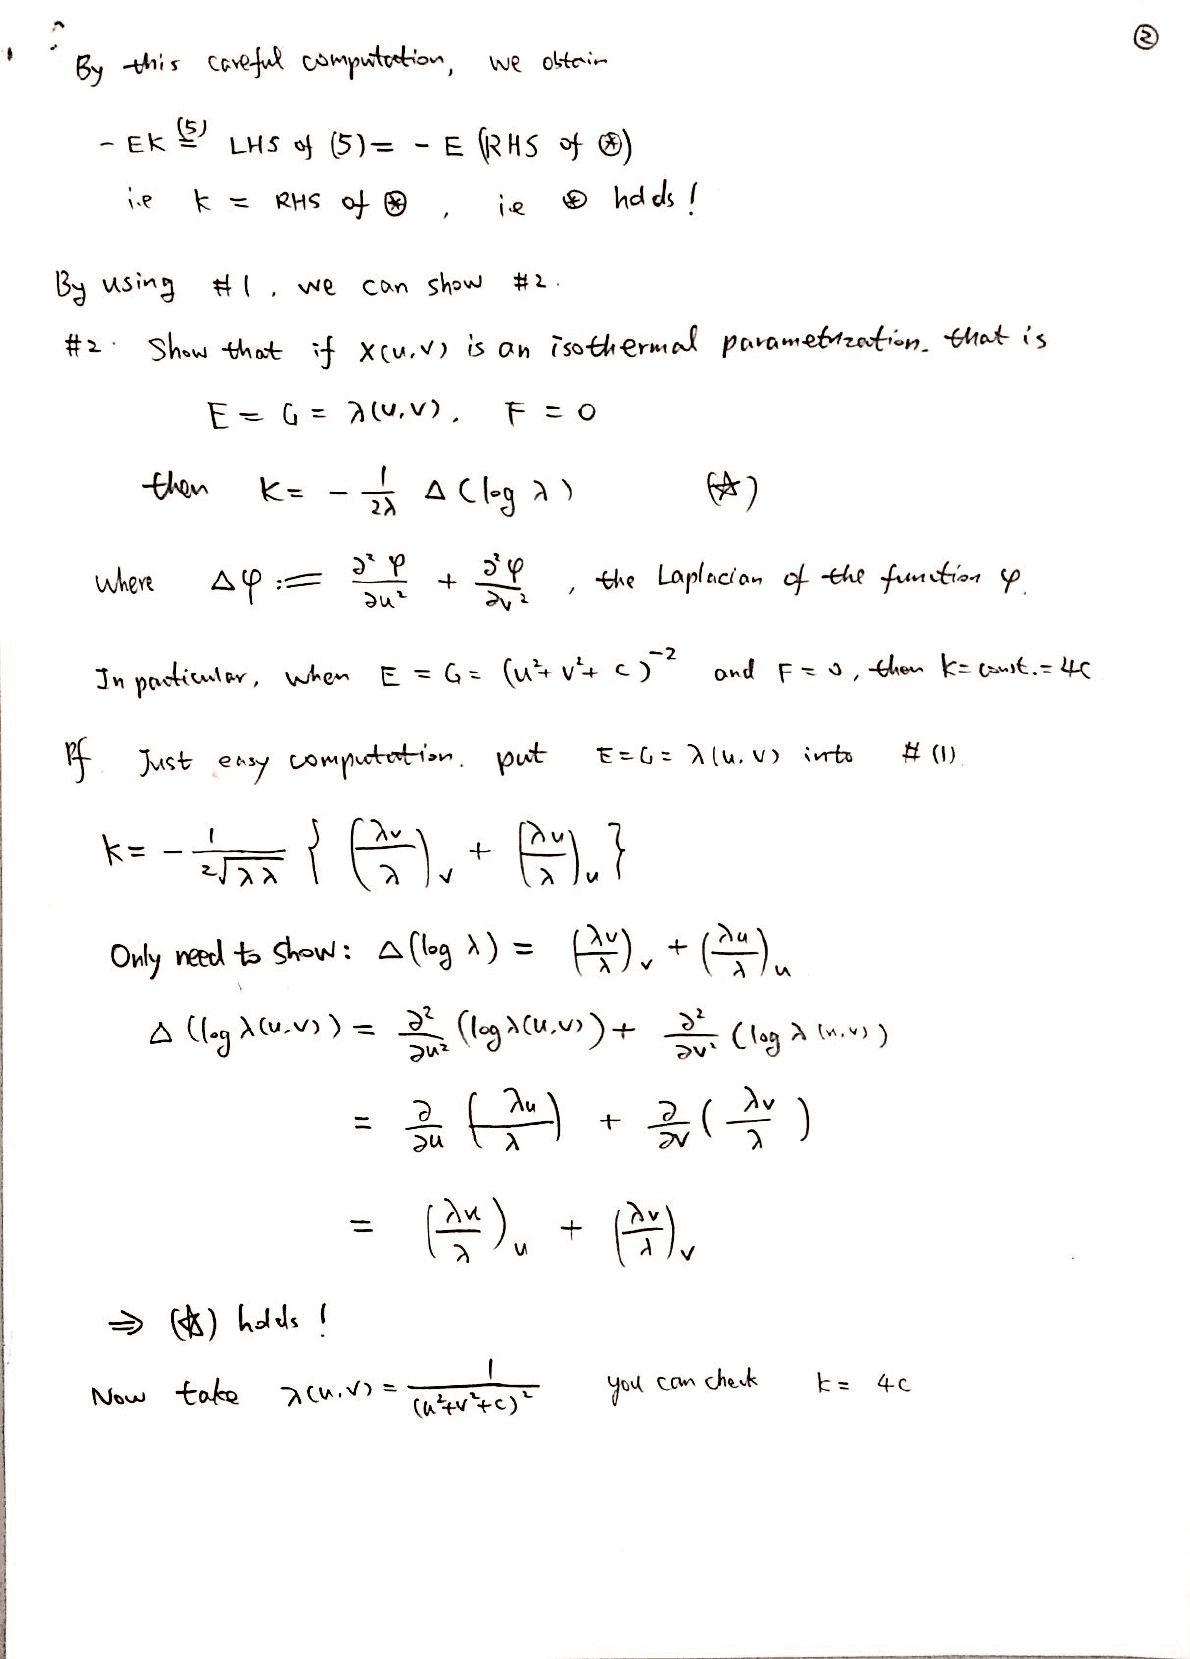 ②
By this careful computation, we obtain
- EK (5)= LHS of (5) = - E (RHS of ⊛)
i.e K = RHS of ⊛ , ie ⊛ holds !
By using #1, we can show #2.
#2. Show that if X(u,v) is an isothermal parametrization. that is
E = G = λ(u,v), F = 0
then K = - 1/2λ Δ(log λ) (☆)
where Δφ := ∂²φ/∂u² + ∂²φ/∂v² , the Laplacian of the function φ.
In particular, when E = G = (u²+v²+c)⁻² and F = 0, then K = const. = 4c
Pf Just easy computation. put E = G = λ(u,v) into #(1).
K = - 1/2√λλ { (λv/λ)v + (λu/λ)u }
Only need to show: Δ(log λ) = (λv/λ)v + (λu/λ)u
Δ(log λ(u,v)) = ∂²/∂u² (log λ(u,v)) + ∂²/∂v² (log λ(u,v))
= ∂/∂u (λu/λ) + ∂/∂v (λv/λ)
= (λu/λ)u + (λv/λ)v
⇒ (☆) holds !
Now take λ(u,v) = 1/(u²+v²+c)² you can check K = 4c